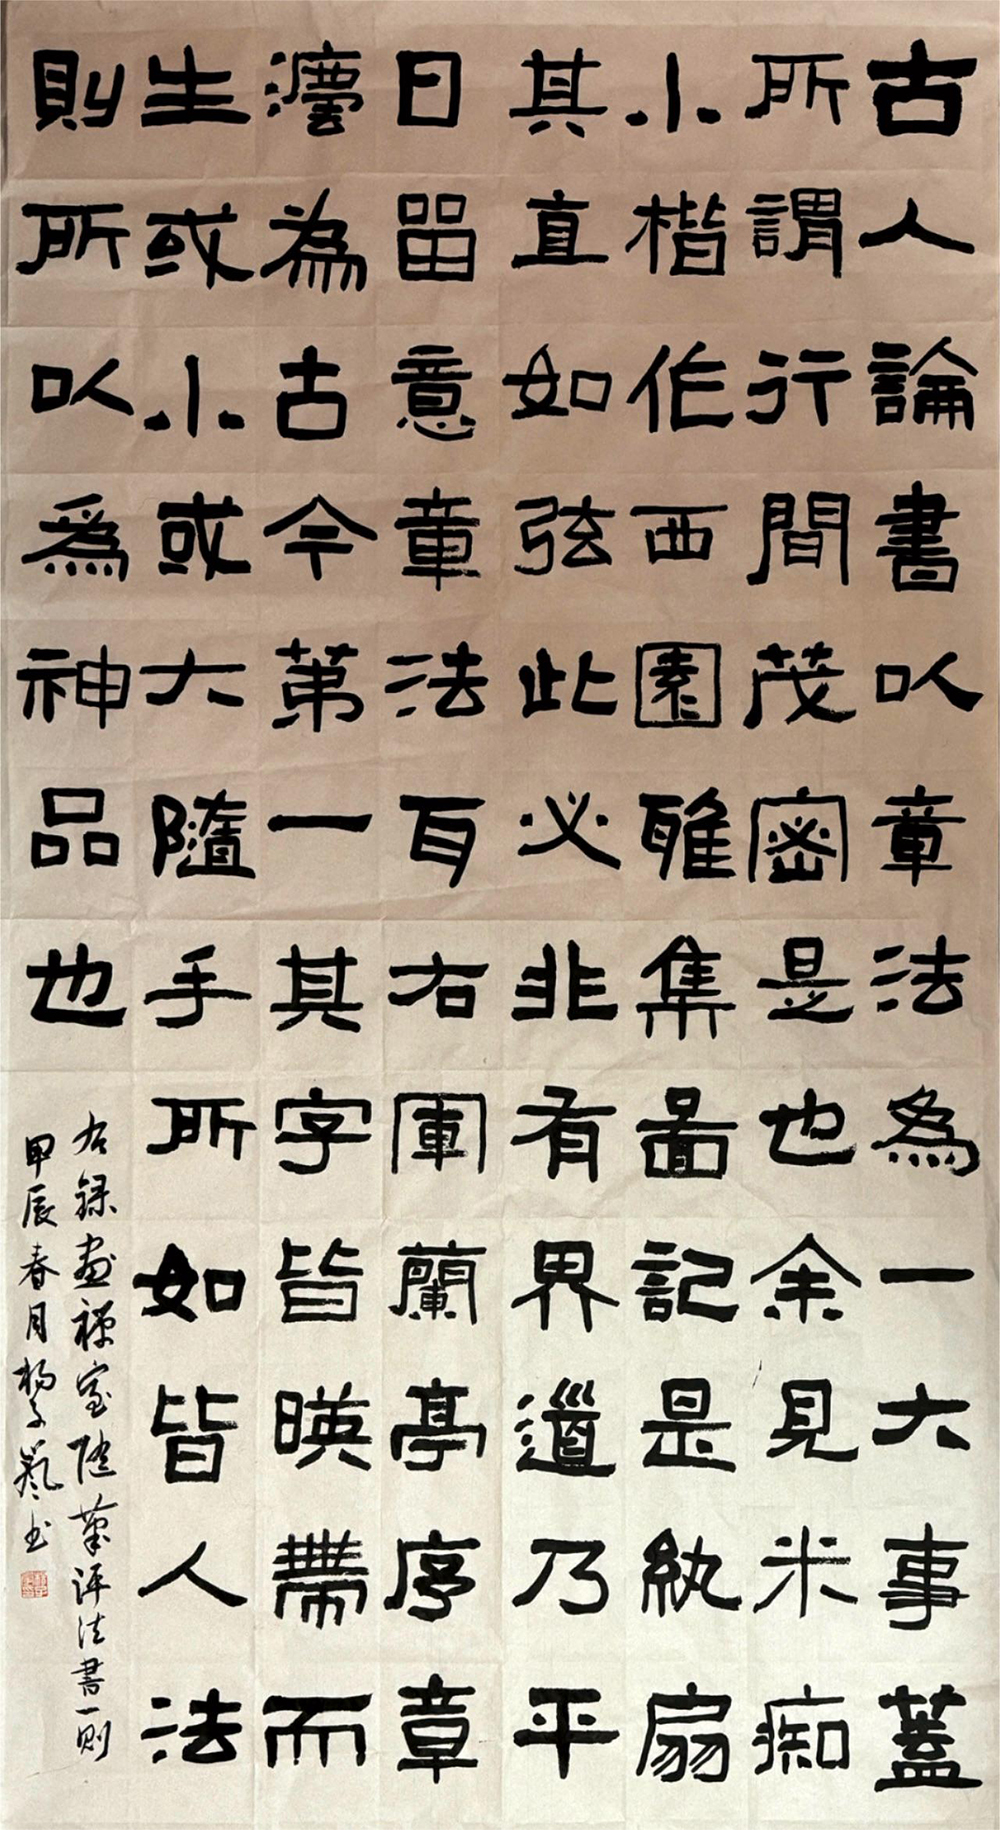 古人論書以章法為一大事蓋
所謂行間茂密是也余見米痴
小楷作西園雅集啚記是紈扇
其直如弦此必非有界道乃平
日畱意章法耳右軍蘭亭序章
灋為古今第一其字皆暎帶而
生或小或大隨手所如皆人法
則所以爲神品也
右録畫禅室随筆評法書一則
甲辰春月楊子书